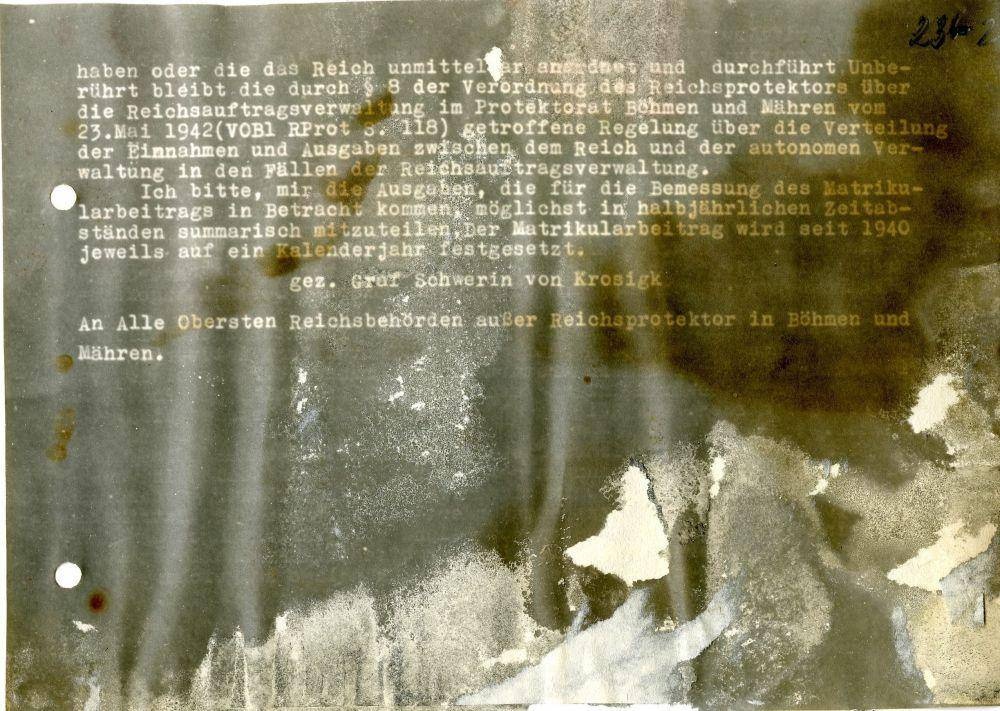 haben oder die das Reich unmittelbar anordnet und durchführt. Unbe-
rührt bleibt die durch § 8 der Verordnung des Reichsprotektors über
die Reichsauftragsverwaltung im Protektorat Böhmen und Mähren vom
23.Mai 1942(VOBl RProt S. 118) getroffene Regelung über die Verteilung
der Einnahmen und Ausgaben zwischen dem Reich und der autonomen Ver-
waltung in den Fällen der Reichsauftragsverwaltung.
Ich bitte, mir die Ausgaben, die für die Bemessung des Matriku-
larbeitrags in Betracht kommen, möglichst in halbjährlichen Zeitab-
ständen summarisch mitzuteilen. Der Matrikularbeitrag wird seit 1940
jeweils auf ein Kalenderjahr festgesetzt.
gez. Graf Schwerin von Krosigk
An Alle Obersten Reichsbehörden außer Reichsprotektor in Böhmen und
Mähren.